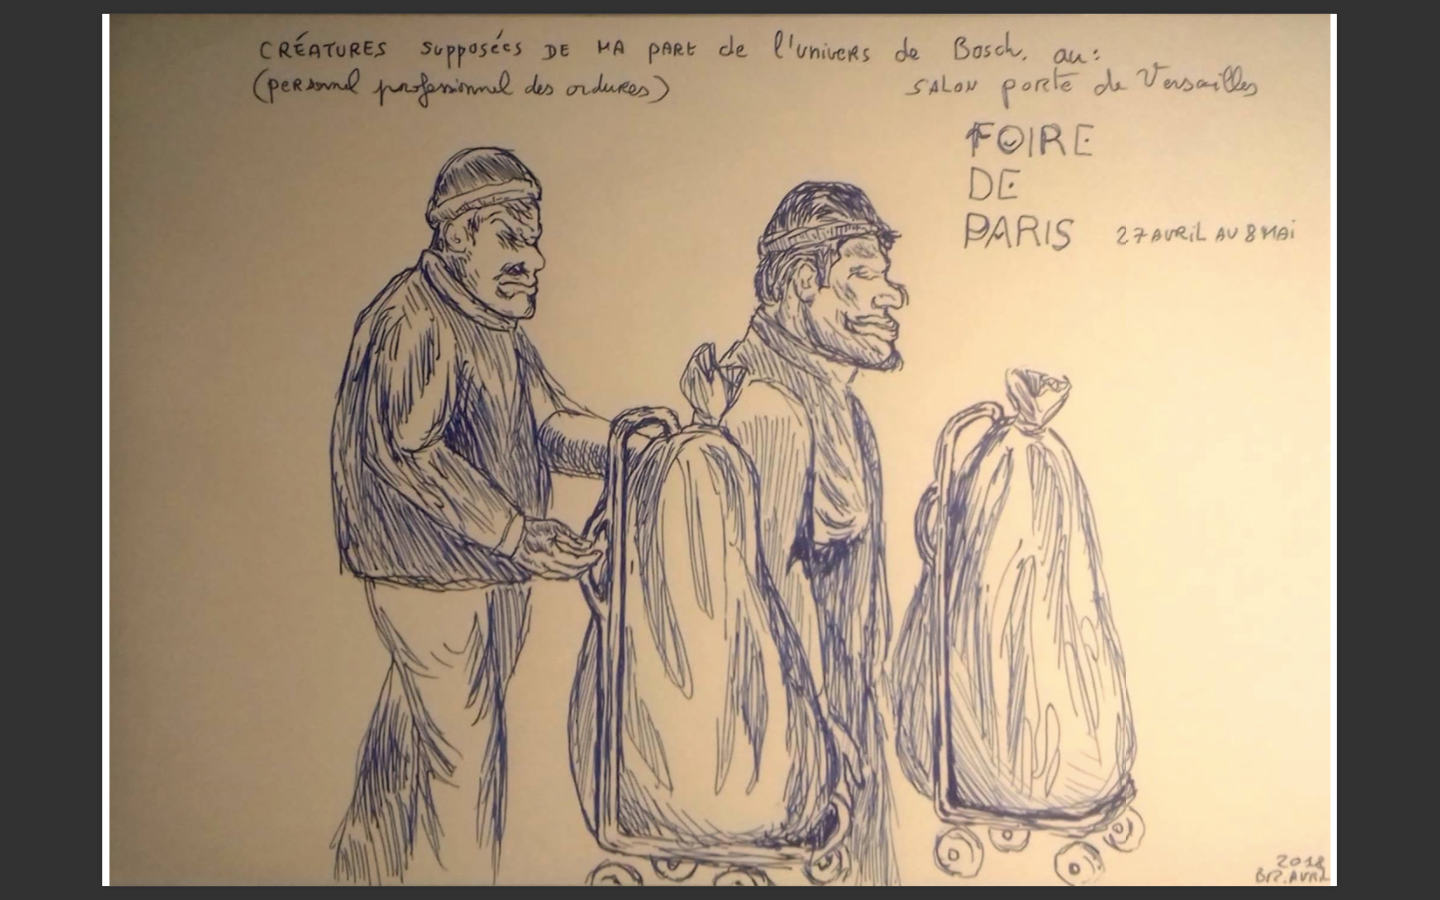 CRÉATURES supposées DE MA PART de l'univers de Bosch, au:
(personnel professionnel des ordures)
SALON porte de Versailles
FOIRE
DE
PARIS
27 AVRIL AU 8 MAI
2018
AVRIL